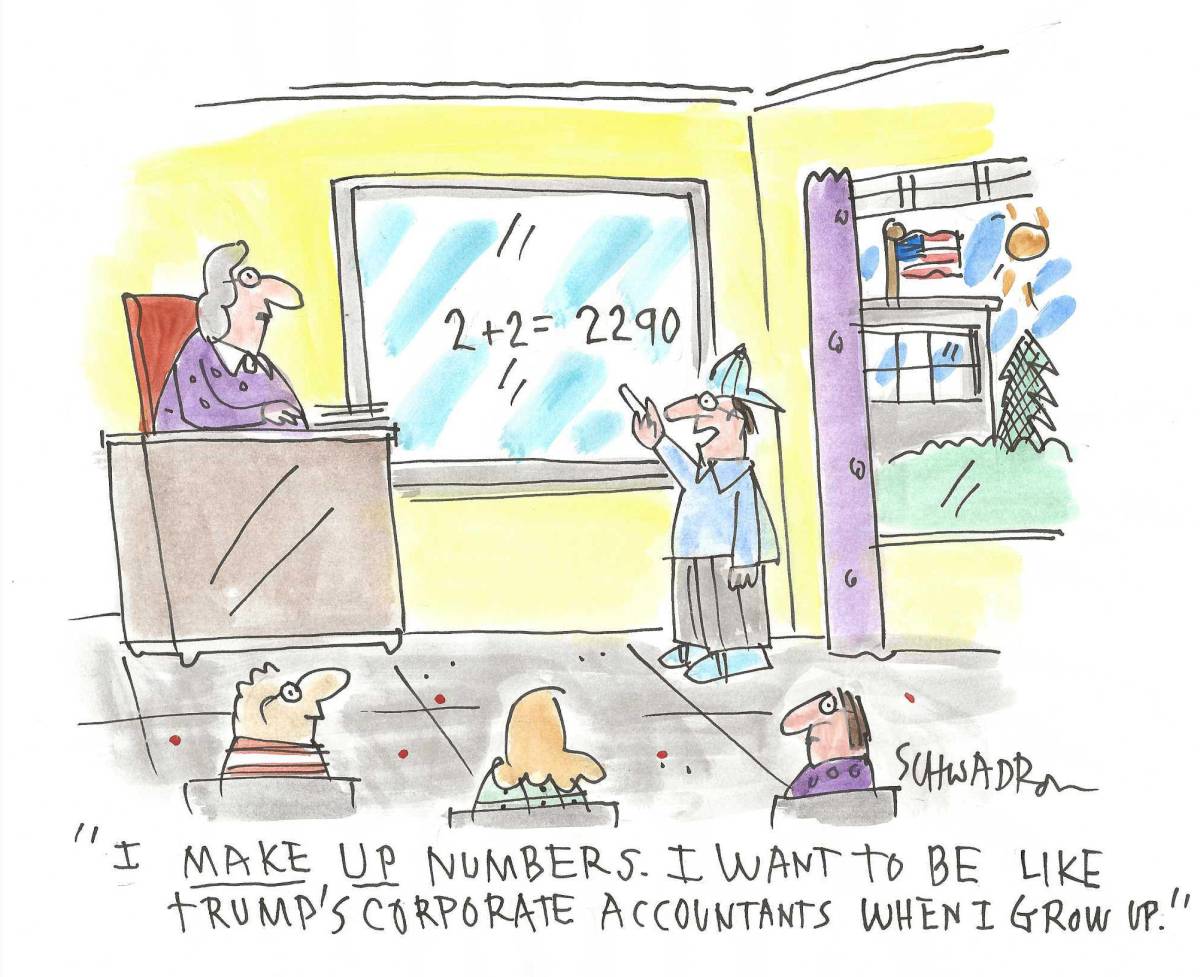 2+2= 2290
SCHWADRON
"I MAKE UP NUMBERS. I WANT TO BE LIKE
TRUMP'S CORPORATE ACCOUNTANTS WHEN I GROW UP."